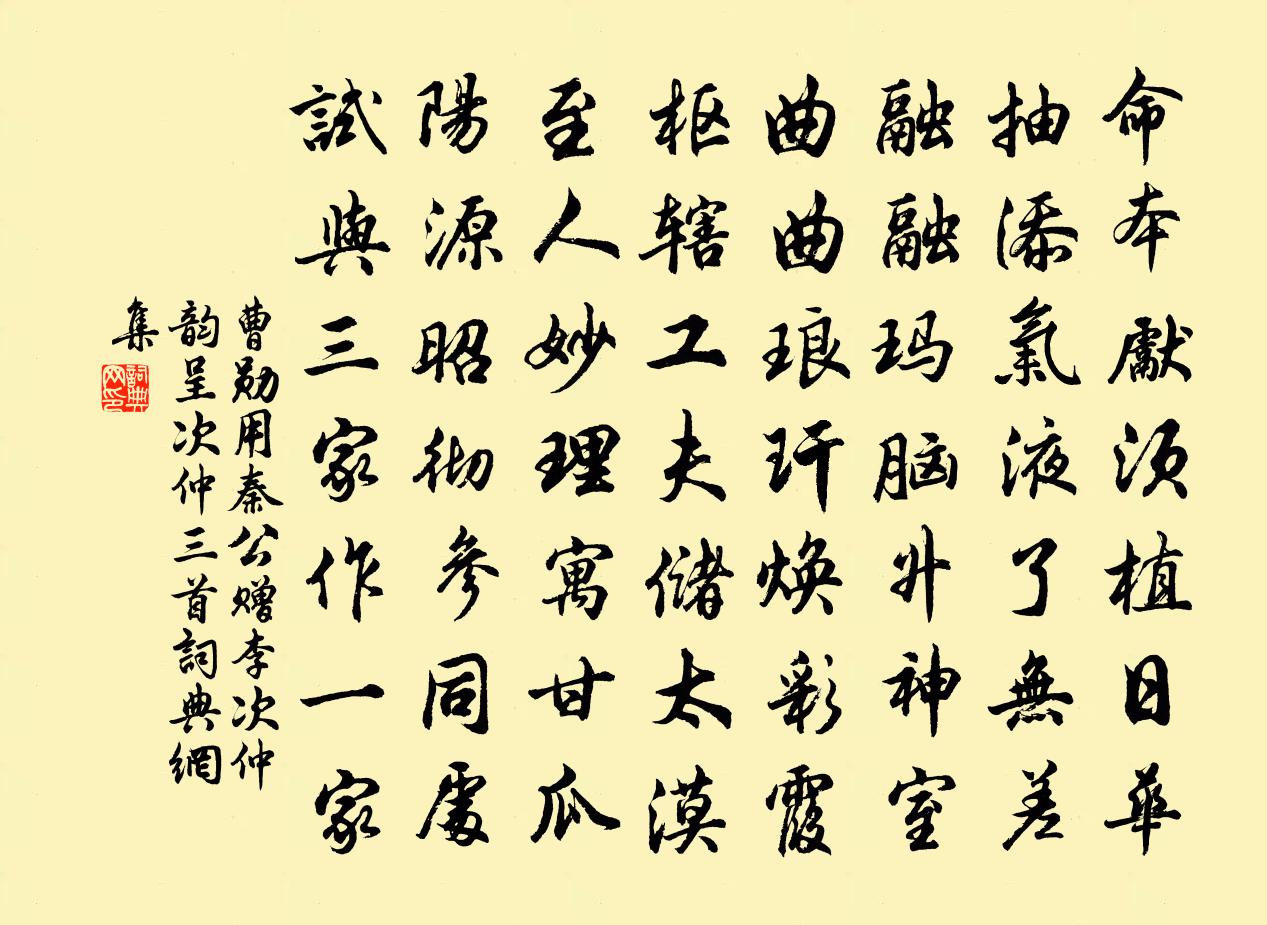 命本獻須植日華
抽添氣液了無差
融融玛脑升神室
曲曲琅玕焕彩霞
枢辖工夫储太漠
至人妙理寓甘瓜
陽源昭彻參同處
試與三家作一家
曹勋用秦公赠李次仲
韵呈次仲三首詞典網
集
詞典
网印